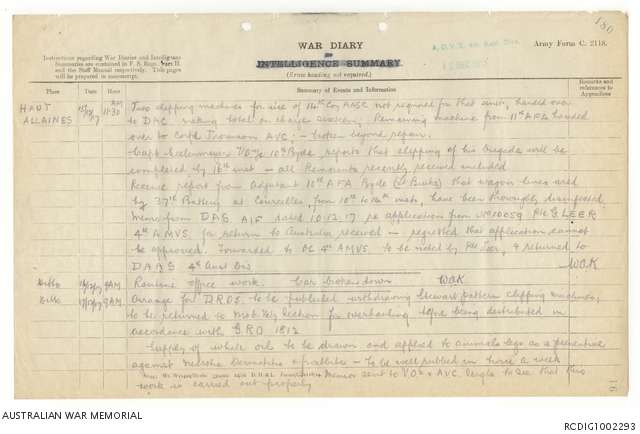 180
WAR DIARY
or
INTELLIGENCE SUMMARY.
(Erase heading not required.)
Instructions regarding War Diaries and Intelligence
Summaries are contained in F. S. Regs., Part II.
and the Staff Manual respectively. Title pages
will be prepared in manuscript.
Army Form C. 2118.
Place Date Hour Summary of Events and Information Remarks and references to Appendices
HAUT ALLAINES 11.30 AM Two clipping machines for use of 14th Coy AASC not required for that unit, handed over
to DAC making total on charge sixteen. Remaining machine from 11th AFA handed
over to Corpl AVC: — broken beyond repair.
Capt VO i/c 10th Bgde, reports that clipping of his Brigade will be
completed by 16th inst — all Remounts recently received included
Receive report from Adjutant 10th AFA Bgde that wagon lines used
by 37th Battery at Courcelles, from 10th to 14th inst, have been thoroughly disinfected.
Memo from DAG AIF dated 10.12.17 re application from No 10059 Pte G LEER
4th AMVS. for return to Australia received — regretted that application cannot
be approved. Forwarded to OC 4th AMVS. to be noted by Pte Leer, & returned to
DADVS 4th Aust Div. WOK
Ditto 9AM Routine office work. Car broken down WOK
Ditto 9AM Arrange for D.R.O.S. to be published withdrawing Stewart pattern clipping machines,
to be returned to Mob Vety Section for overhauling before being distributed in
accordance with GRO 1812
Supply of white oils to be drawn and applied to animals legs as a preventive
against Necrotic Dermatitis & — to be well rubbed in twice a week
Memos sent to VOs & AVC Sergts to see that this
work is carried out properly
91
AUSTRALIAN WAR MEMORIAL
RCDIG1002293